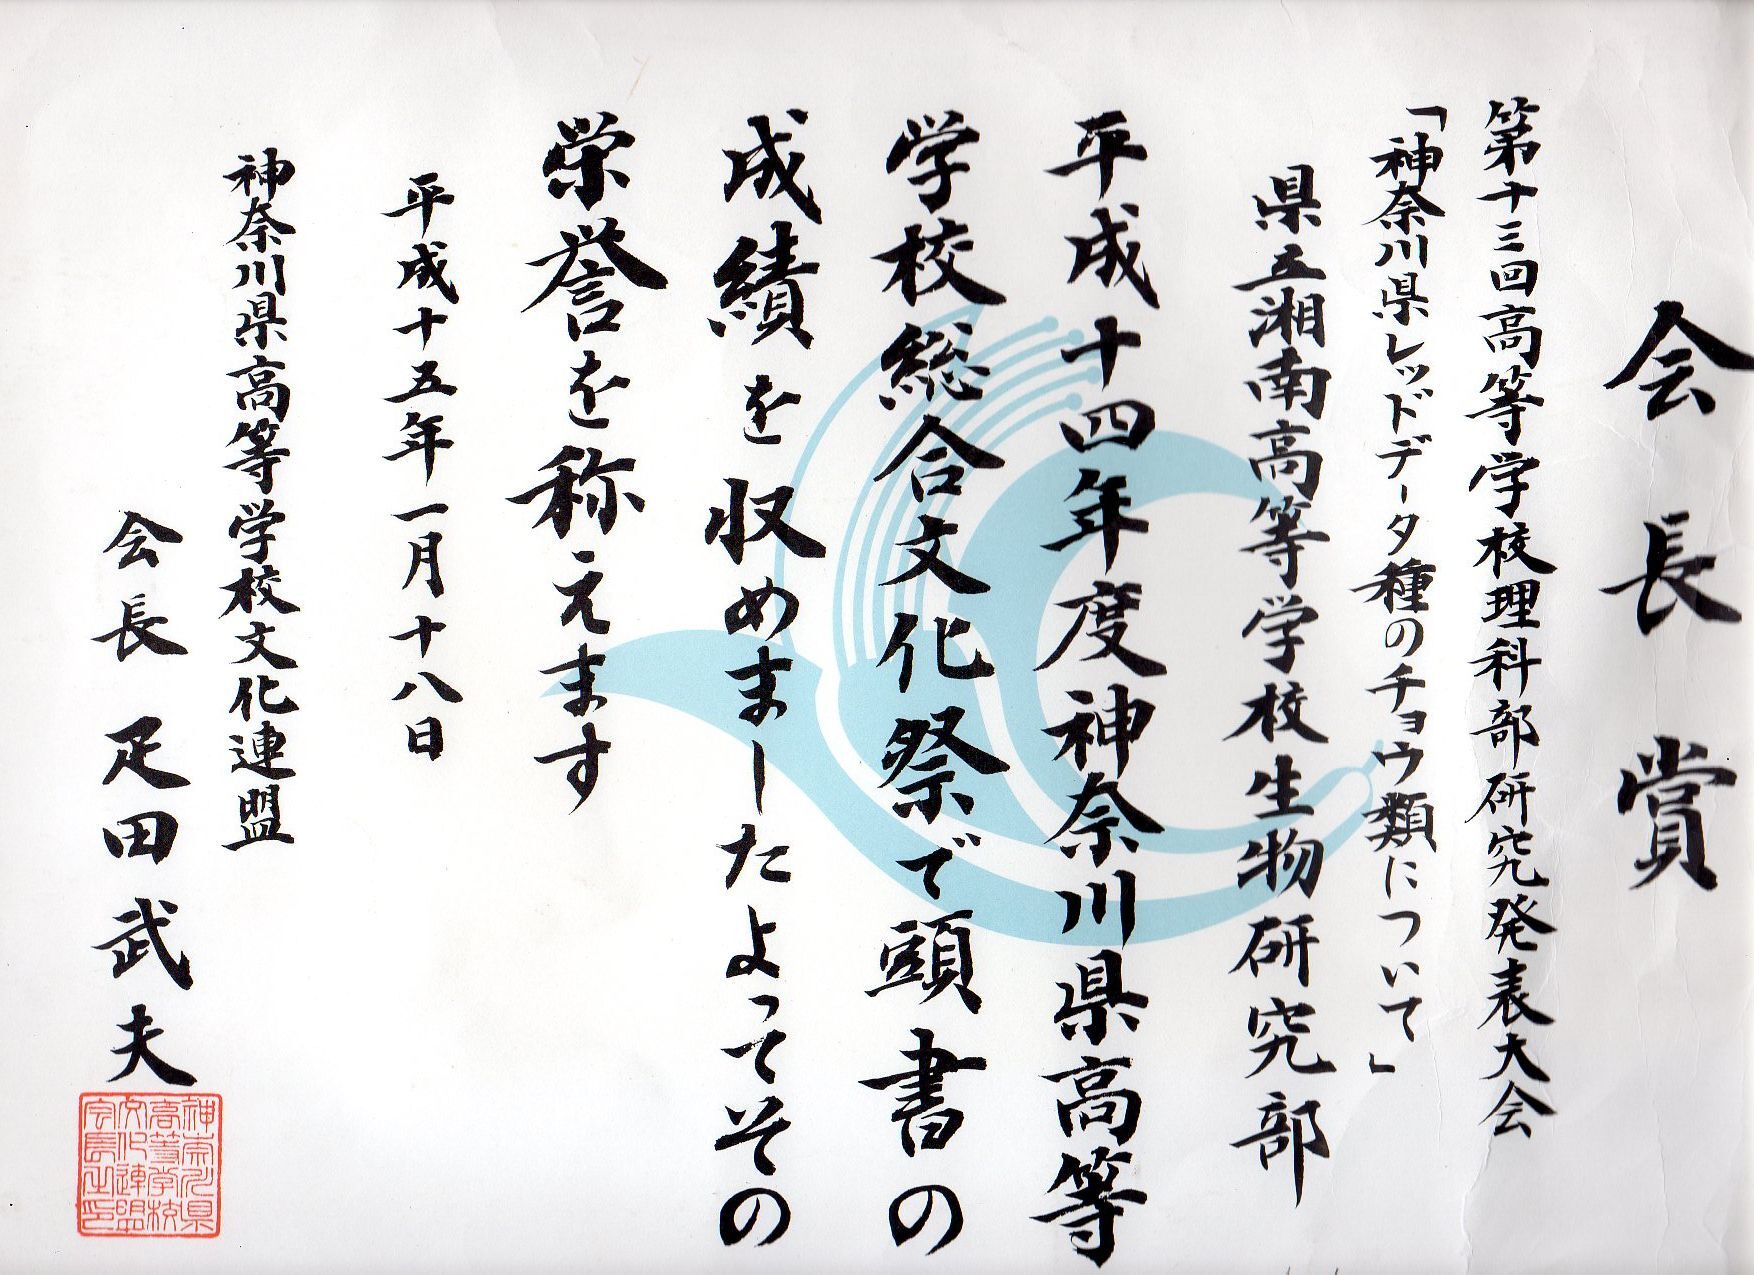 会長賞
第十三回高等学校理科部研究発表大会
「神奈川県レッドデータ種のチョウ類について」
県立湘南高等学校生物研究部
平成十四年度神奈川県高等
学校総合文化祭で頭書の
成績を収めましたよってその
栄誉を称えます
平成十五年一月十八日
神奈川県高等学校文化連盟
会長 疋田武夫
神奈川県
高等学校
文化連盟
会長之印